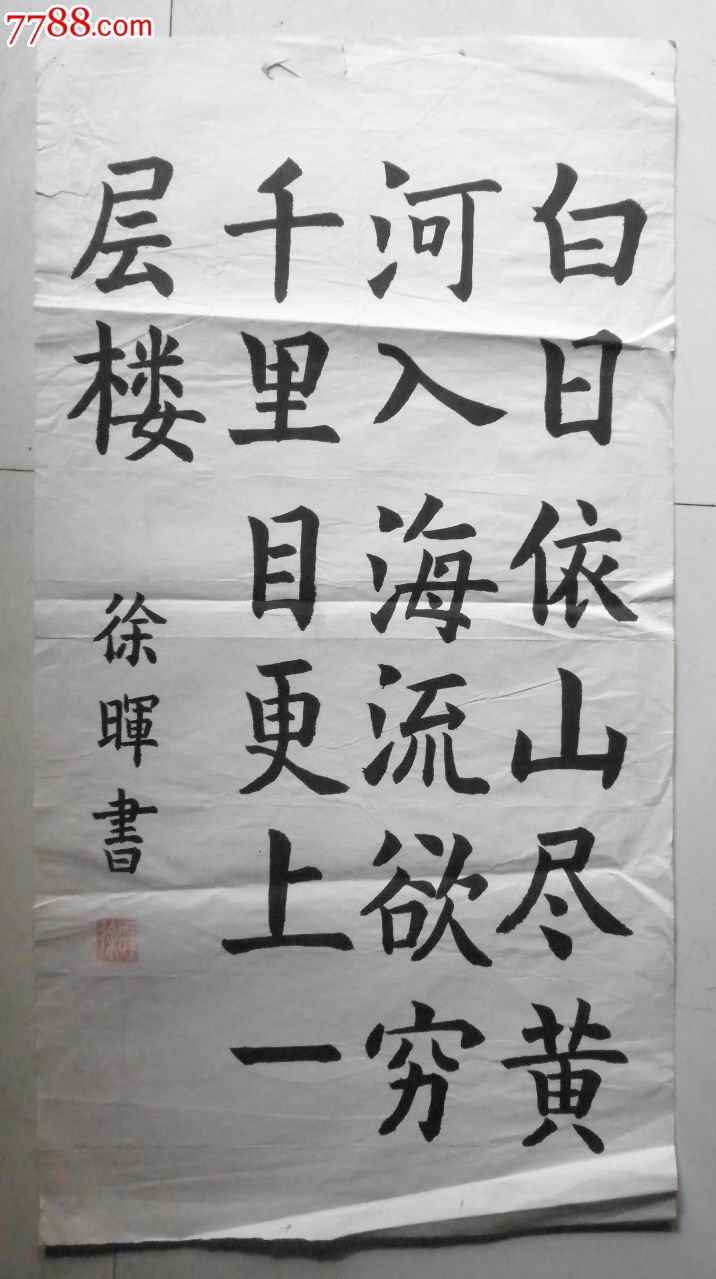 7788.com
白日依山尽黄
河入海流欲穷
千里目更上一
层楼
徐暉書
徐暉